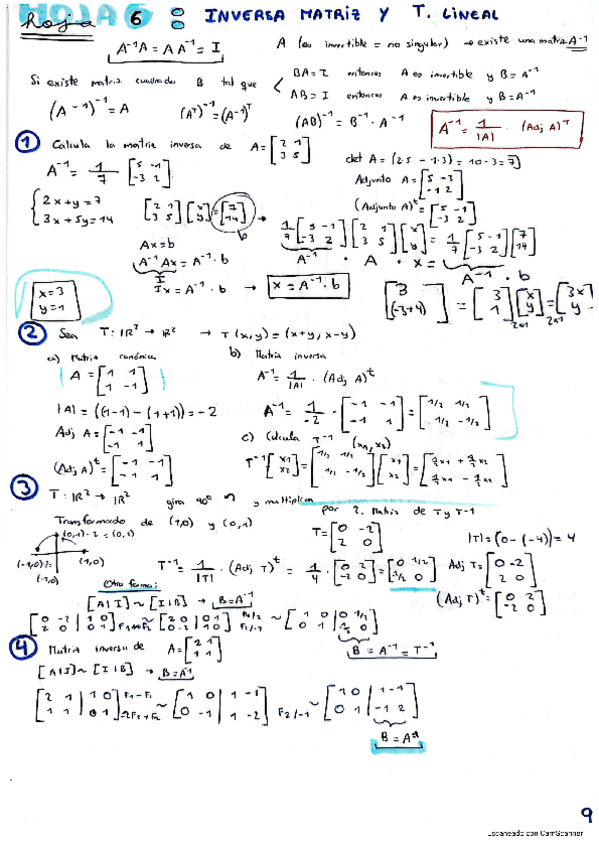 Hoja 6 : INVERSA MATRIZ Y T. LINEAL
A⁻¹A = AA⁻¹ = I A (es invertible = no singular) → existe una matriz A⁻¹
Si existe matriz cuadrada B tal que
BA = I entonces A es invertible y B = A⁻¹
AB = I entonces A es invertible y B = A⁻¹
(A⁻¹)⁻¹ = A (Aᵀ)⁻¹ = (A⁻¹)ᵀ (AB)⁻¹ = B⁻¹ · A⁻¹ A⁻¹ = 1/|A| · (Adj A)ᵀ
① Calcula la matriz inversa de A = [2 1; 3 5] det A = (2·5 - 1·3) = 10 - 3 = 7
A⁻¹ = 1/7 [5 -1; -3 2] Adjunto A = [5 -3; -1 2]
(Adjunto A)ᵗ = [5 -1; -3 2]
{2x + y = 7; 3x + 5y = 14 [2 1; 3 5] [x; y] = [7; 14] b → 1/7 [5 -1; -3 2] [2 1; 3 5] [x; y] = 1/7 [5 -1; -3 2] [7; 14]
A⁻¹ · A · x = A⁻¹ · b
Ax = b
A⁻¹Ax = A⁻¹ · b
I
Ix = A⁻¹ · b → x = A⁻¹ · b
x = 3
y = 1
[3; (-3+4)] = [3; 1] [x; y] 2x1 2x1
② Sea T: IR² → IR² → T(x,y) = (x+y, x-y)
a) Matriz canónica b) Matriz inversa
A = [1 1; 1 -1] A⁻¹ = 1/|A| · (Adj A)ᵗ
|A| = ((1·-1) - (1·1)) = -2 A⁻¹ = 1/-2 · [-1 -1; -1 1] = [1/2 1/2; 1/2 -1/2]
Adj A = [-1 -1; -1 1] c) Calcula T⁻¹ (x₁, x₂)
(Adj A)ᵗ = [-1 -1; -1 1] T⁻¹ [x₁; x₂] = [1/2 1/2; 1/2 -1/2] [x₁; x₂] = [1/2 x₁ + 1/2 x₂; 1/2 x₁ - 1/2 x₂]
③ T: IR² → IR² gira 90° y multiplica por 2. Matriz de T y T⁻¹
Transformado de (1,0) y (0,1) T = [0 -2; 2 0] |T| = (0 - (-4)) = 4
(1,0)
T⁻¹ = 1/|T| · (Adj T)ᵗ = 1/4 · [0 2; -2 0] = [0 1/2; -1/2 0] Adj T = [0 -2; 2 0]
(Adj T)ᵗ = [0 2; -2 0]
Otra forma:
[A|I] ~ [I|B] → B = A⁻¹
[0 -2 | 1 0; 2 0 | 0 1] F1↔F2 ~ [2 0 | 0 1; 0 -2 | 1 0] F1/2 F2/-2 ~ [1 0 | 0 1/2; 0 1 | -1/2 0]
B = A⁻¹ = T⁻¹
④ Matriz inversa de A = [2 1; 1 1]
[A|I] ~ [I|B] → B = A⁻¹
[2 1 | 1 0; 1 1 | 0 1] ~ [1 0 | 1 -1; 0 -1 | 1 -2] F2/-1 ~ [1 0 | 1 -1; 0 1 | -1 2]
B = A⁻¹
9
Escaneado con CamScanner